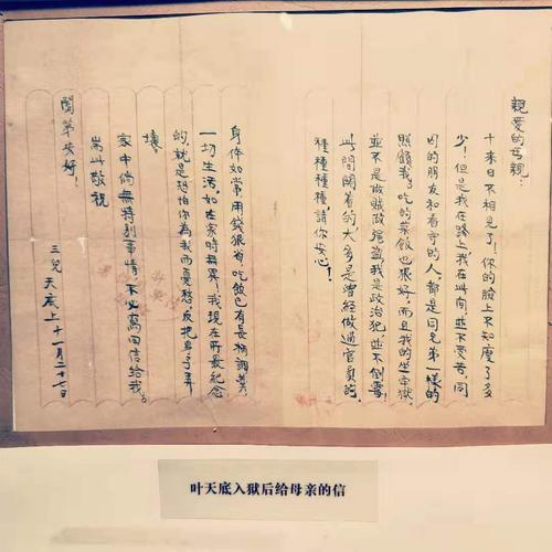 親愛的母親：
十来日不相見了！你的臉上不知瘦了多
少！但是我在路上，我在此間，並不受苦，同
囚的朋友和看守的人，都是同兄弟一樣的
照顧我，吃的菜飯也很好，而且我的坐牢獄，
並不是做賊做强盜，我是政治犯，並不倒霉！
此間関着的，大多是曾經做過官員的，
種種種種，請你安心！
身体如常，用錢狠省，吃飯已有長粥調羹，
一切生活，如在家時無異！我現在所最紀念
的，就是恐怕你為我而憂愁，反把身子弄
壞。
家中倘無特别事情，不必寫回信給我。
耑此敬祝
閤第安好！
三兒
天底上十一月二十七日
叶天底入狱后给母亲的信